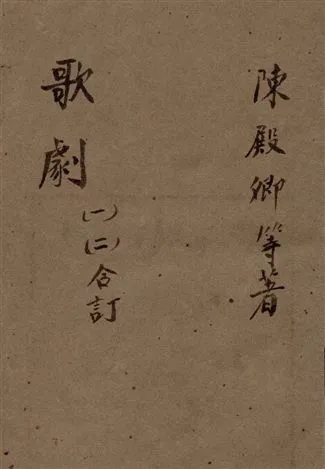 陳殿卿等著
歌劇
(一)(二)合訂